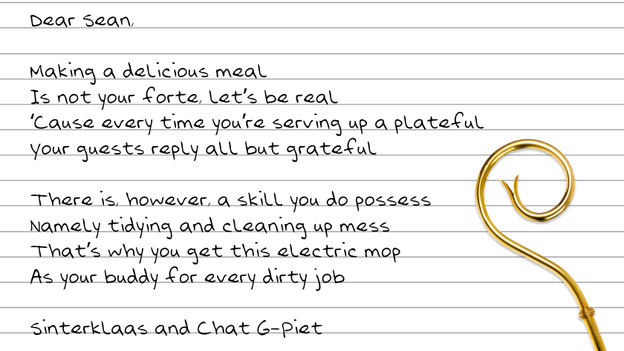 Dear Sean,
Making a delicious meal
Is not your forte, let's be real
'Cause every time you're serving up a plateful
Your guests reply all but grateful
There is, however, a skill you do possess
Namely tidying and cleaning up mess
That's why you get this electric mop
As your buddy for every dirty job
Sinterklaas and Chat G-Piet